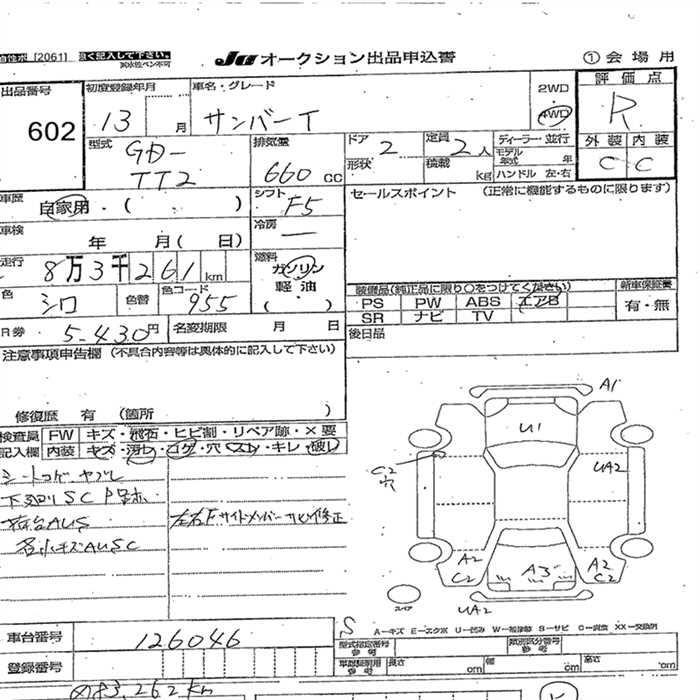 [2061]
JU オークション出品申込書 ① 会場用
出品番号 602
初度登録年月 13 月
車名・グレード サンバーT
2WD
4WD
評価点 R
外装 内装
C C
型式 GD-TT2
排気量 660 cc
ドア 2
形状
定員 2 人
積載 kg
ディーラー・並行
モデル年式 年
ハンドル 左・右
車歴 自家用・( )
シフト F5
冷房 ー
車検 年 月( 日)
走行 8万3千261 km
燃料 ガソリン
軽油
( )
色 シロ 色替 色コード 955
R券 5-430円 名変期限 月 日
セールスポイント (正常に機能するものに限ります)
装備品(純正品に限り○をつけてください)
PS PW ABS エアB
SR ナビ TV
新車保証書
有・無
後日品
注意事項申告欄 (不具合内容等は具体的に記入して下さい)
修復歴 有 (箇所 )
検査員 FW キズ・飛石・ヒビ割・リペア跡・×要
記入欄 内装 キズ・汚れ・コゲ・穴・スレ・キレ・破レ
シートコゲ ヤブレ
左右Fサイドメンバーサビ修正
A1
U1
C2
穴
UA2
A2
C2
A3
A2
C2
UA2
スペア
S
A-キズ E-エクボ U-凹み W-補修跡 S-サビ C-腐食 XX-交換済
車台番号 126046
登録番号
型式指定番号
参考
類別区分番号
参考
車庫証明用
参考
長さ cm 幅 cm 高さ cm
83,262 km